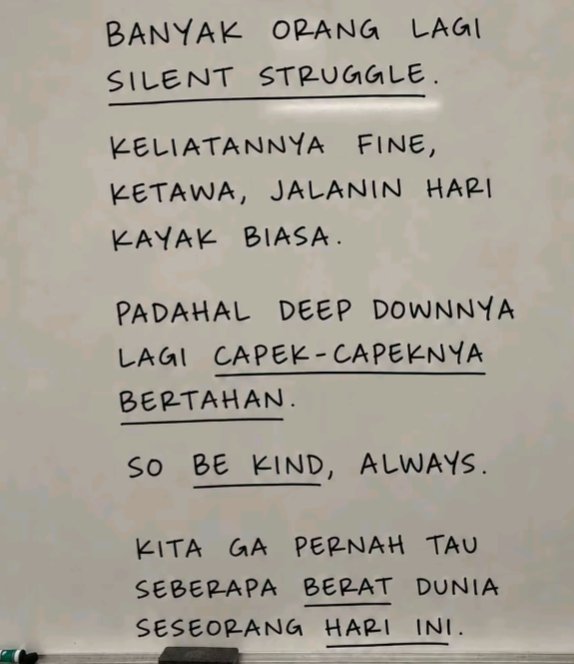 BANYAK ORANG LAGI
SILENT STRUGGLE.
KELIATANNYA FINE,
KETAWA, JALANIN HARI
KAYAK BIASA.
PADAHAL DEEP DOWNNYA
LAGI CAPEK-CAPEKNYA
BERTAHAN.
SO BE KIND, ALWAYS.
KITA GA PERNAH TAU
SEBERAPA BERAT DUNIA
SESEORANG HARI INI.